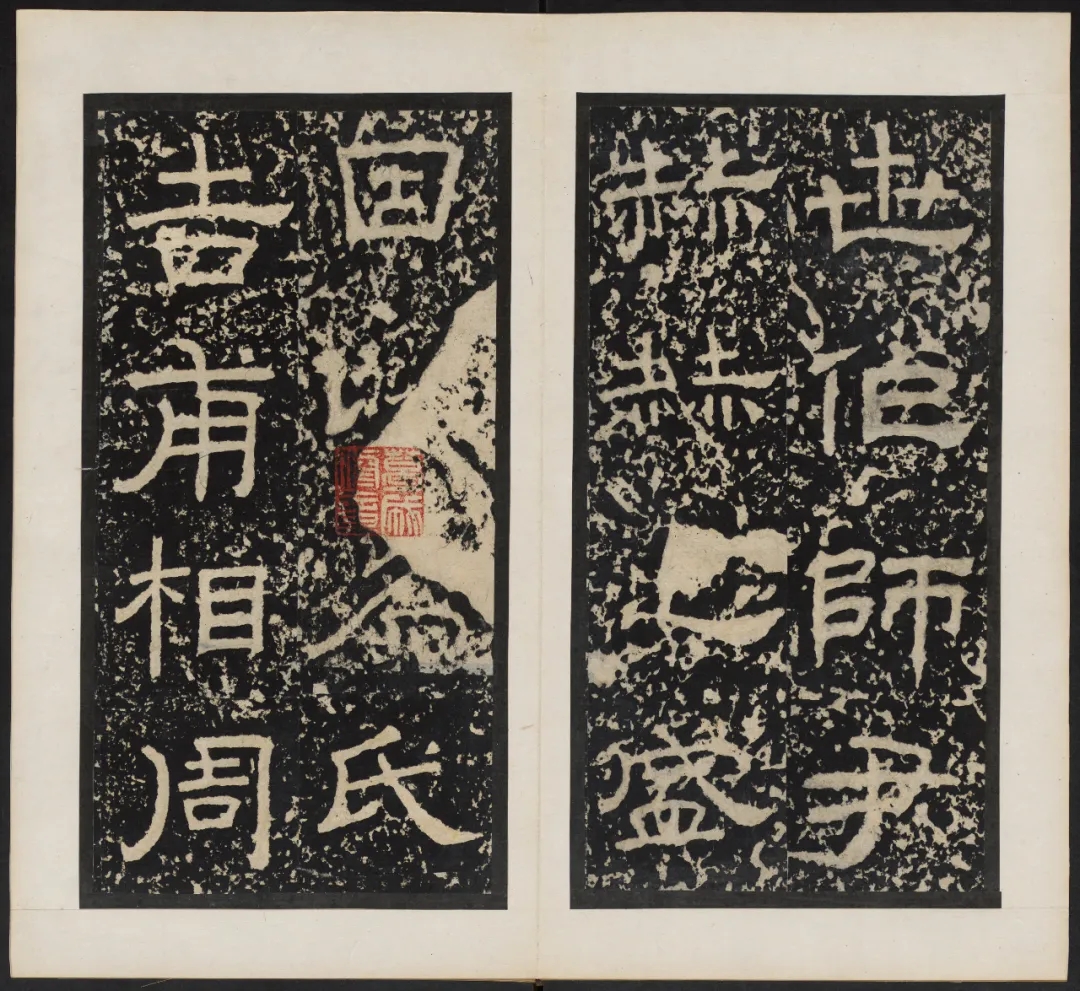 世作師尹
赫赫之盛
因以爲氏
吉甫相周